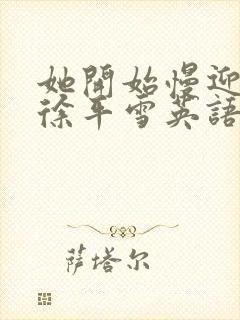 她開始慢迎
徐平雪英語
萨塔尔